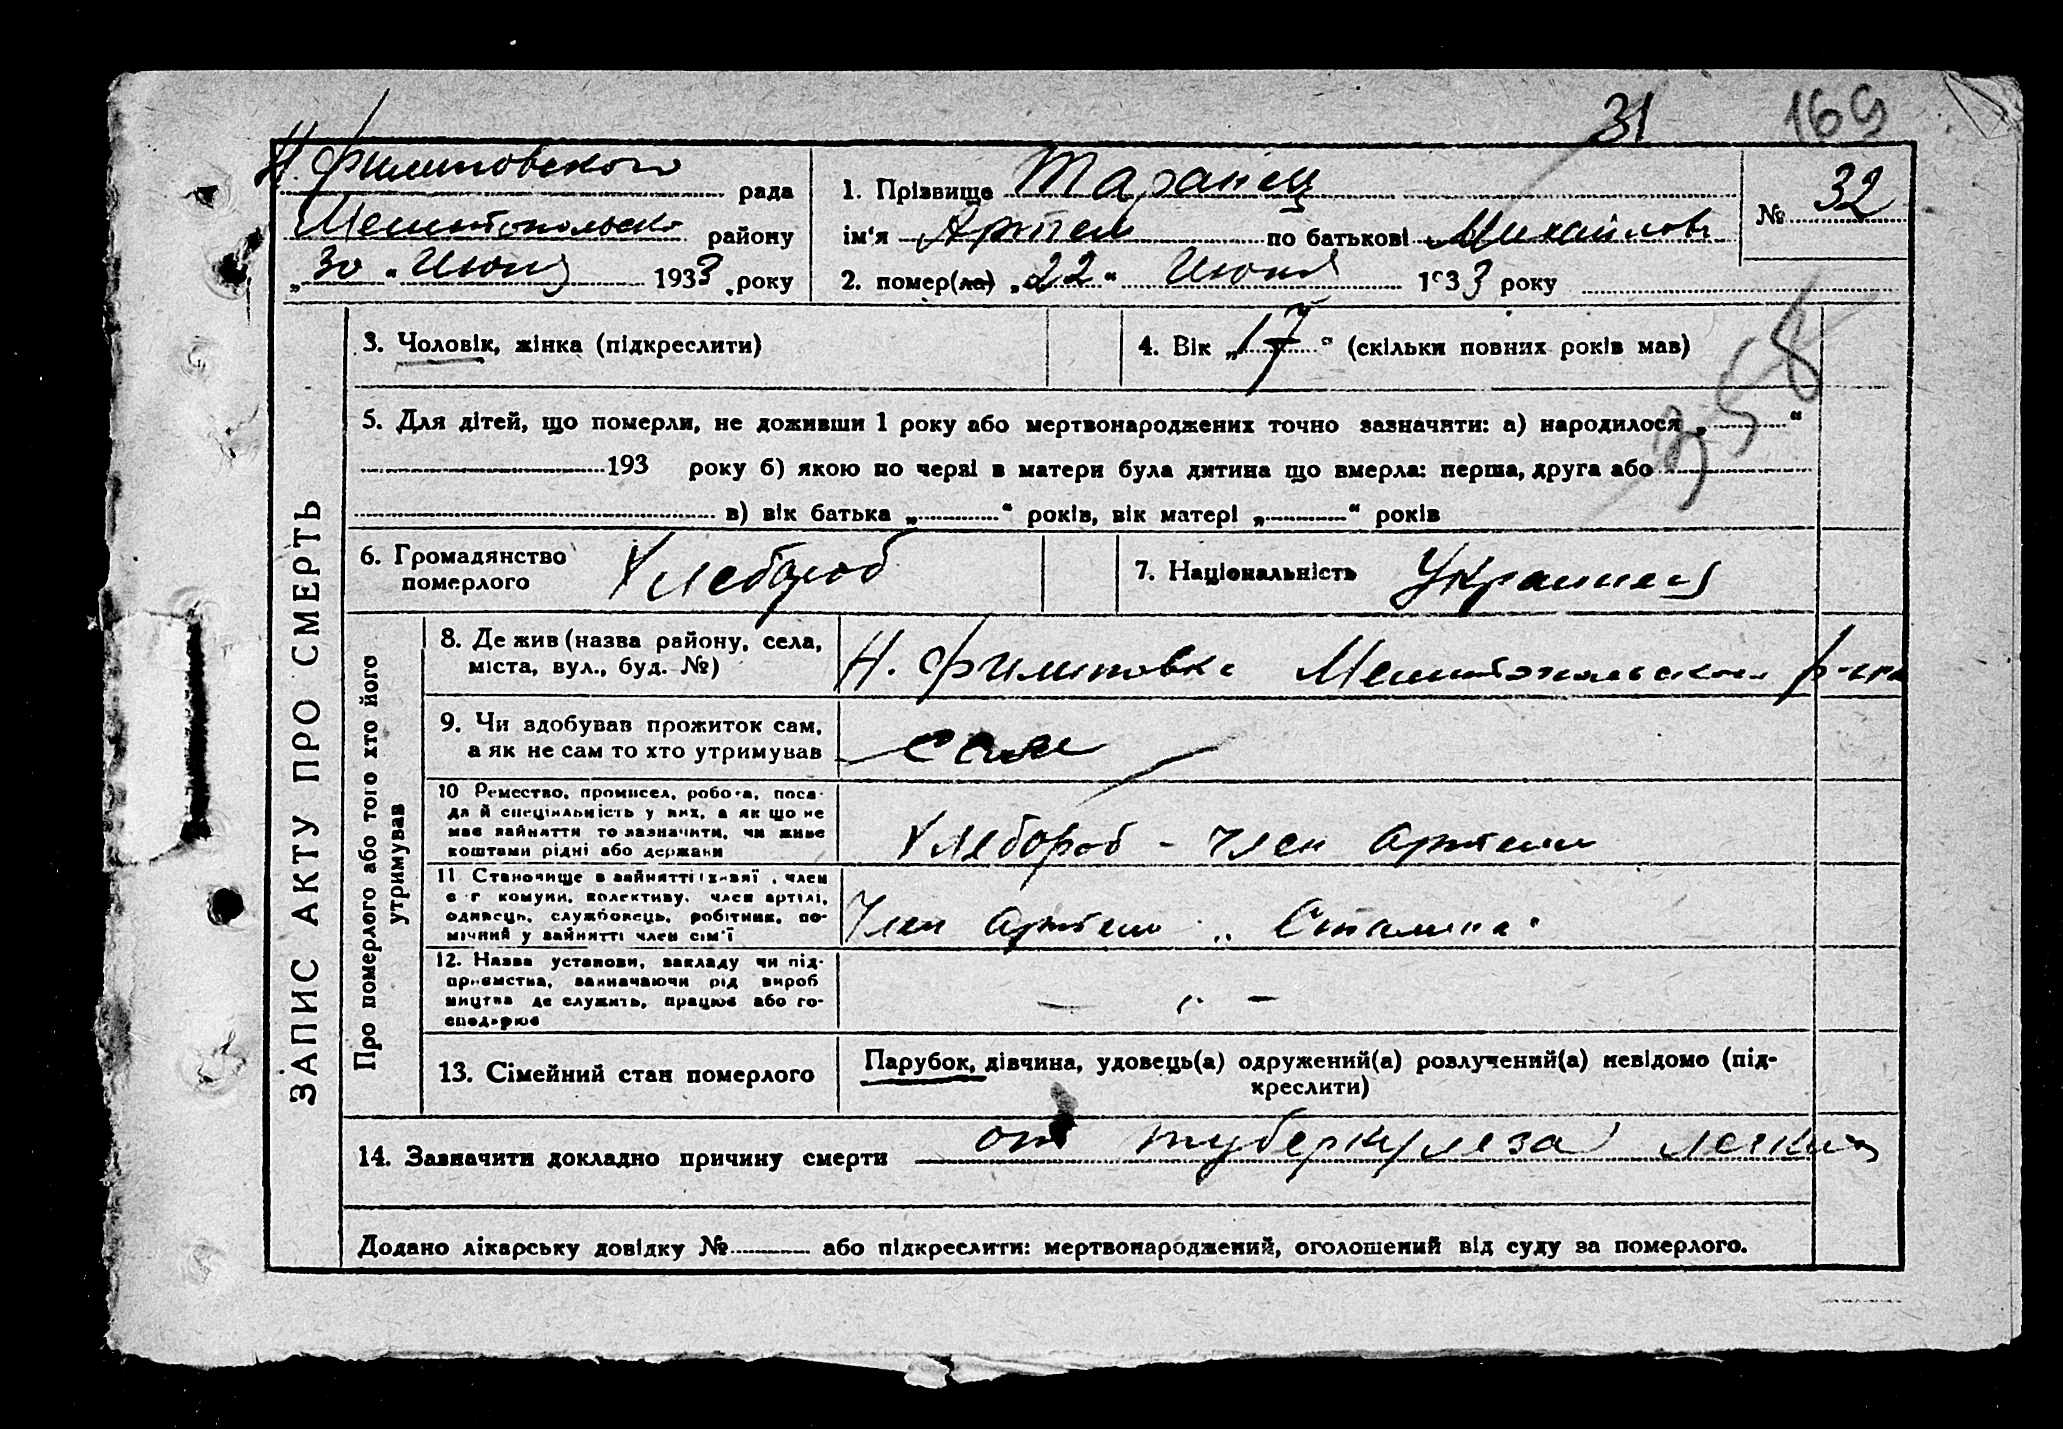 31 169
Н. Филиповского рада
Мелитопольско району
„30“ Июня 1933 року
1. Прізвище Таранец
ім'я Артем по батькові Михайлов
2. помер(ла) „22“ Июня 1933 року
№ 32
ЗАПИС АКТУ ПРО СМЕРТЬ
3. Чоловік, жінка (підкреслити)
4. Вік „17“ (скільки повних років мав)
358
5. Для дітей, що померли, не доживши 1 року або мертвонароджених точно зазначити: а) народилося „ “
193 року б) якою по черзі в матери була дитина що вмерла: перша, друга або
в) вік батька „ “ років, вік матері „ “ років
6. Громадянство
померлого Хлебороб
7. Національність Украинец
Про померлого або того хто його
утримував
8. Де жив (назва району, села,
міста, вул., буд. №)
Н. Филиповка Мелитопольского р-на
9. Чи здобував прожиток сам,
а як не сам то хто утримував
сам
10 Ремество, промисел, робота, поса-
да й спеціяльність у них, а як що не
має зайняття то зазначити, чи живе
коштами рідні або держави
Хлебороб - член артели
11 Становище в зайнятті: член
с г комуни, колективу, член артілі,
одинець, службовець, робітник, по-
мічний у зайнятті член сім'ї
Член артели „Сталина“
12. Назва установи, закладу чи під-
приємства, зазначаючи рід вироб
ництва де служить, працює або го-
сподарює
13. Сімейний стан померлого
Парубок, дівчина, удовець(а) одружений(а) розлучений(а) невідомо (під-
креслити)
14. Зазначити докладно причину смерти от туберкулеза легких
Додано лікарську довідку № або підкреслити: мертвонароджений, оголошений від суду за померлого.